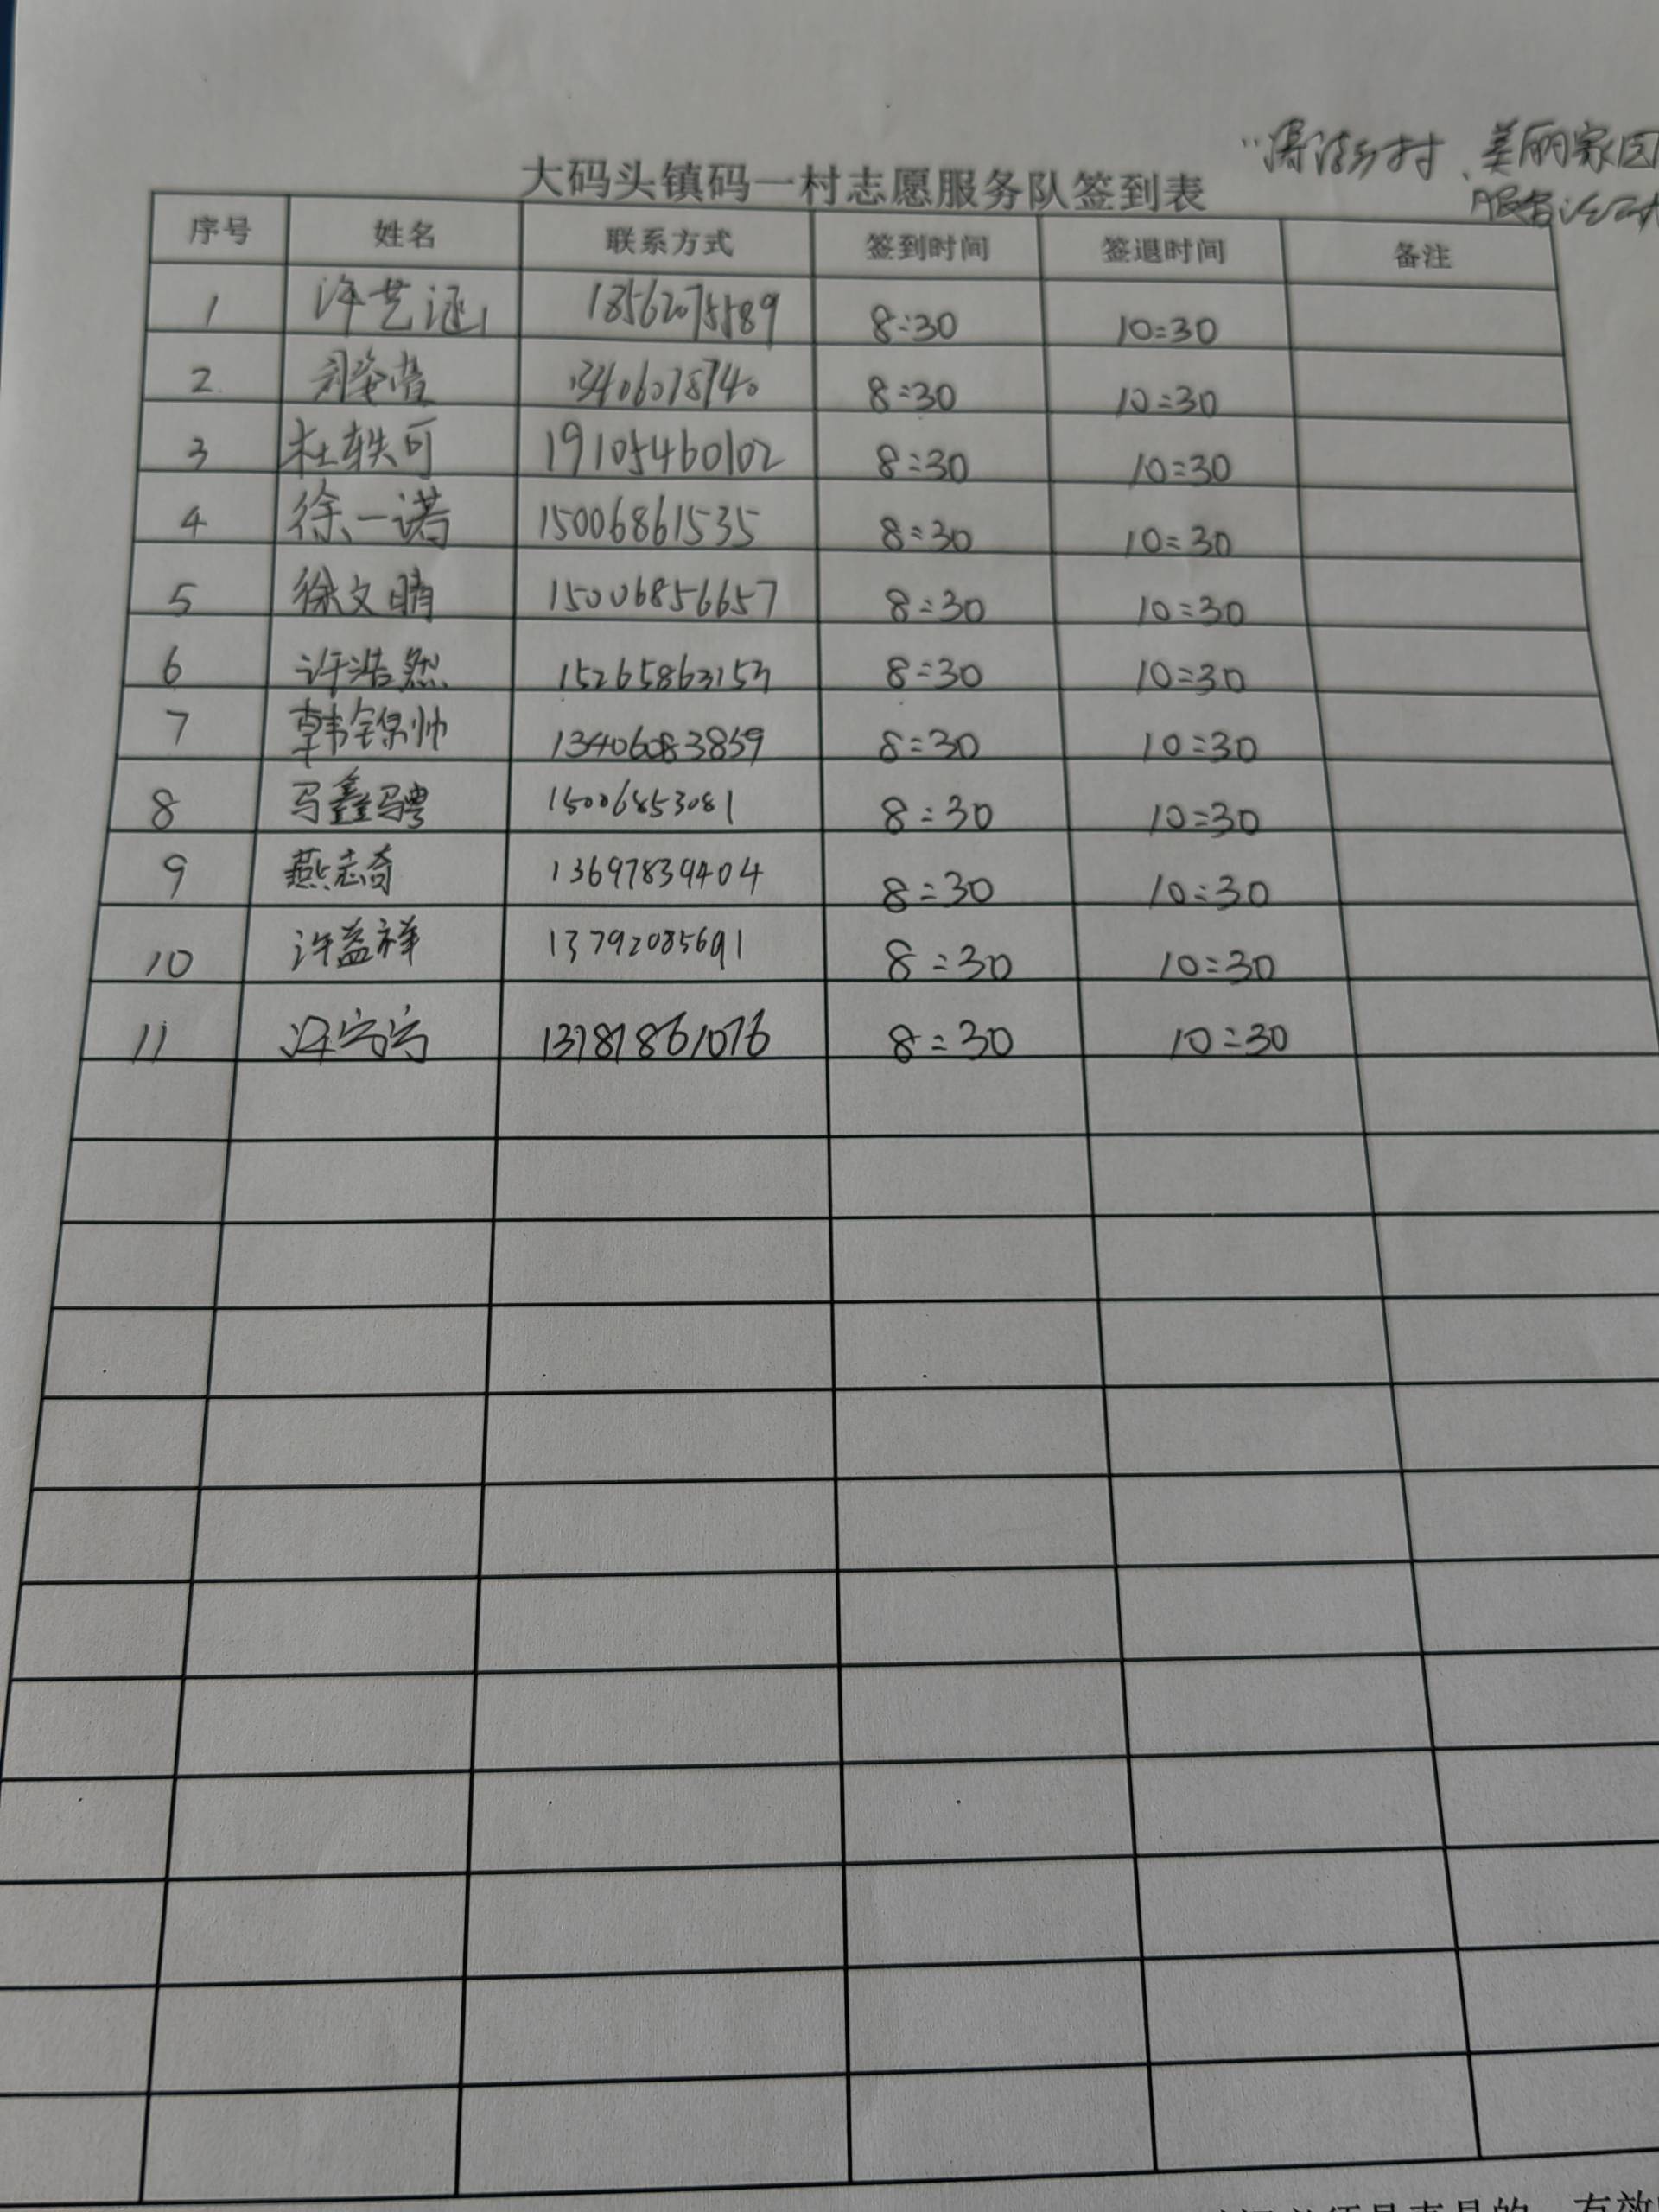 美丽家园
大码头镇码一村志愿服务队签到表
服务
序号 姓名 联系方式 签到时间 签退时间 备注
1 许艺涵 18562075589 8:30 10:30
2 13406078740 8:30 10:30
3 杜轶可 19105460102 8:30 10:30
4 徐一诺 15006861535 8:30 10:30
5 徐文晴 15006856657 8:30 10:30
6 许浩然 15265863153 8:30 10:30
7 韩锦帅 13406083859 8:30 10:30
8 马鑫骋 15006853081 8:30 10:30
9 燕志奇 13697839404 8:30 10:30
10 许益祥 13792085691 8:30 10:30
11 8:30 10:30